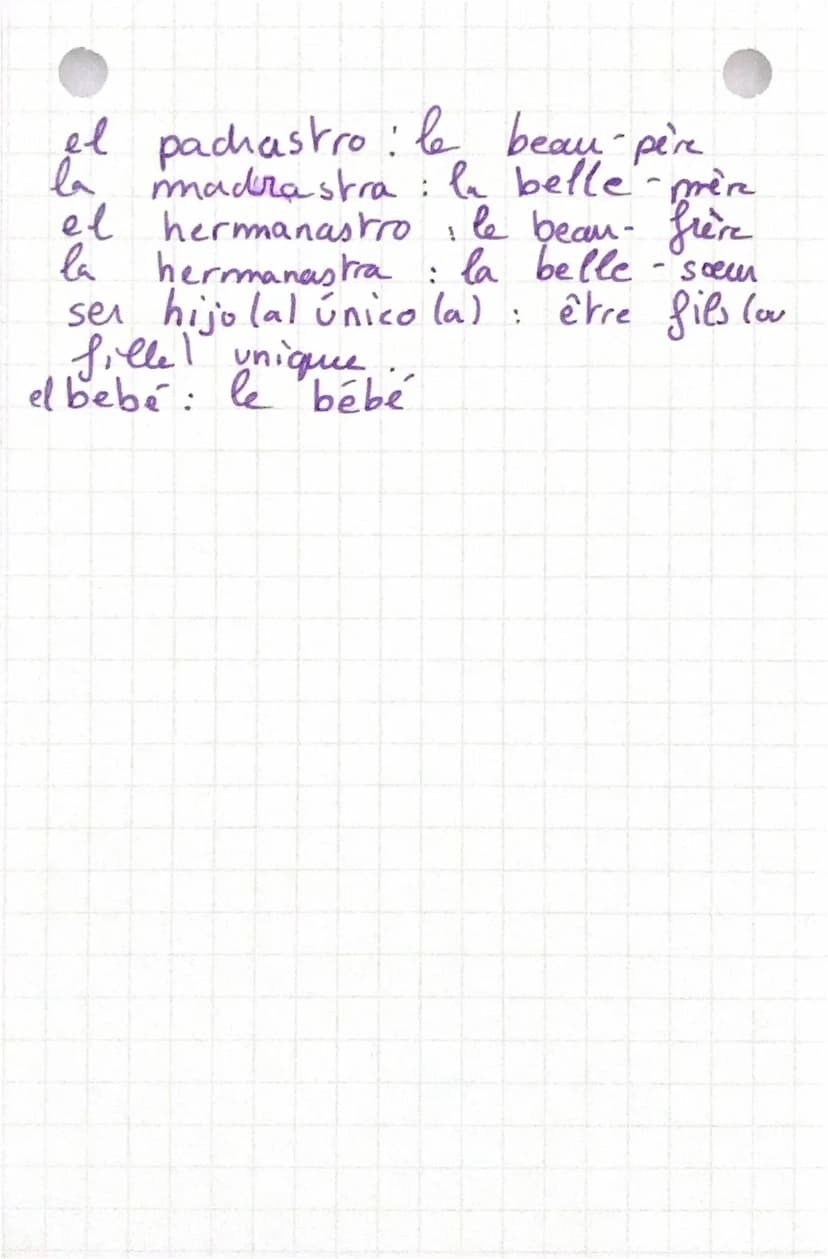 el padrastro : le beau-père
la madrastra : la belle-mère
el hermanastro : le beau-frère
la hermanastra : la belle-sœur
ser hijo(a) único(a) : être fils (ou
fille) unique.
el bebé : le bébé